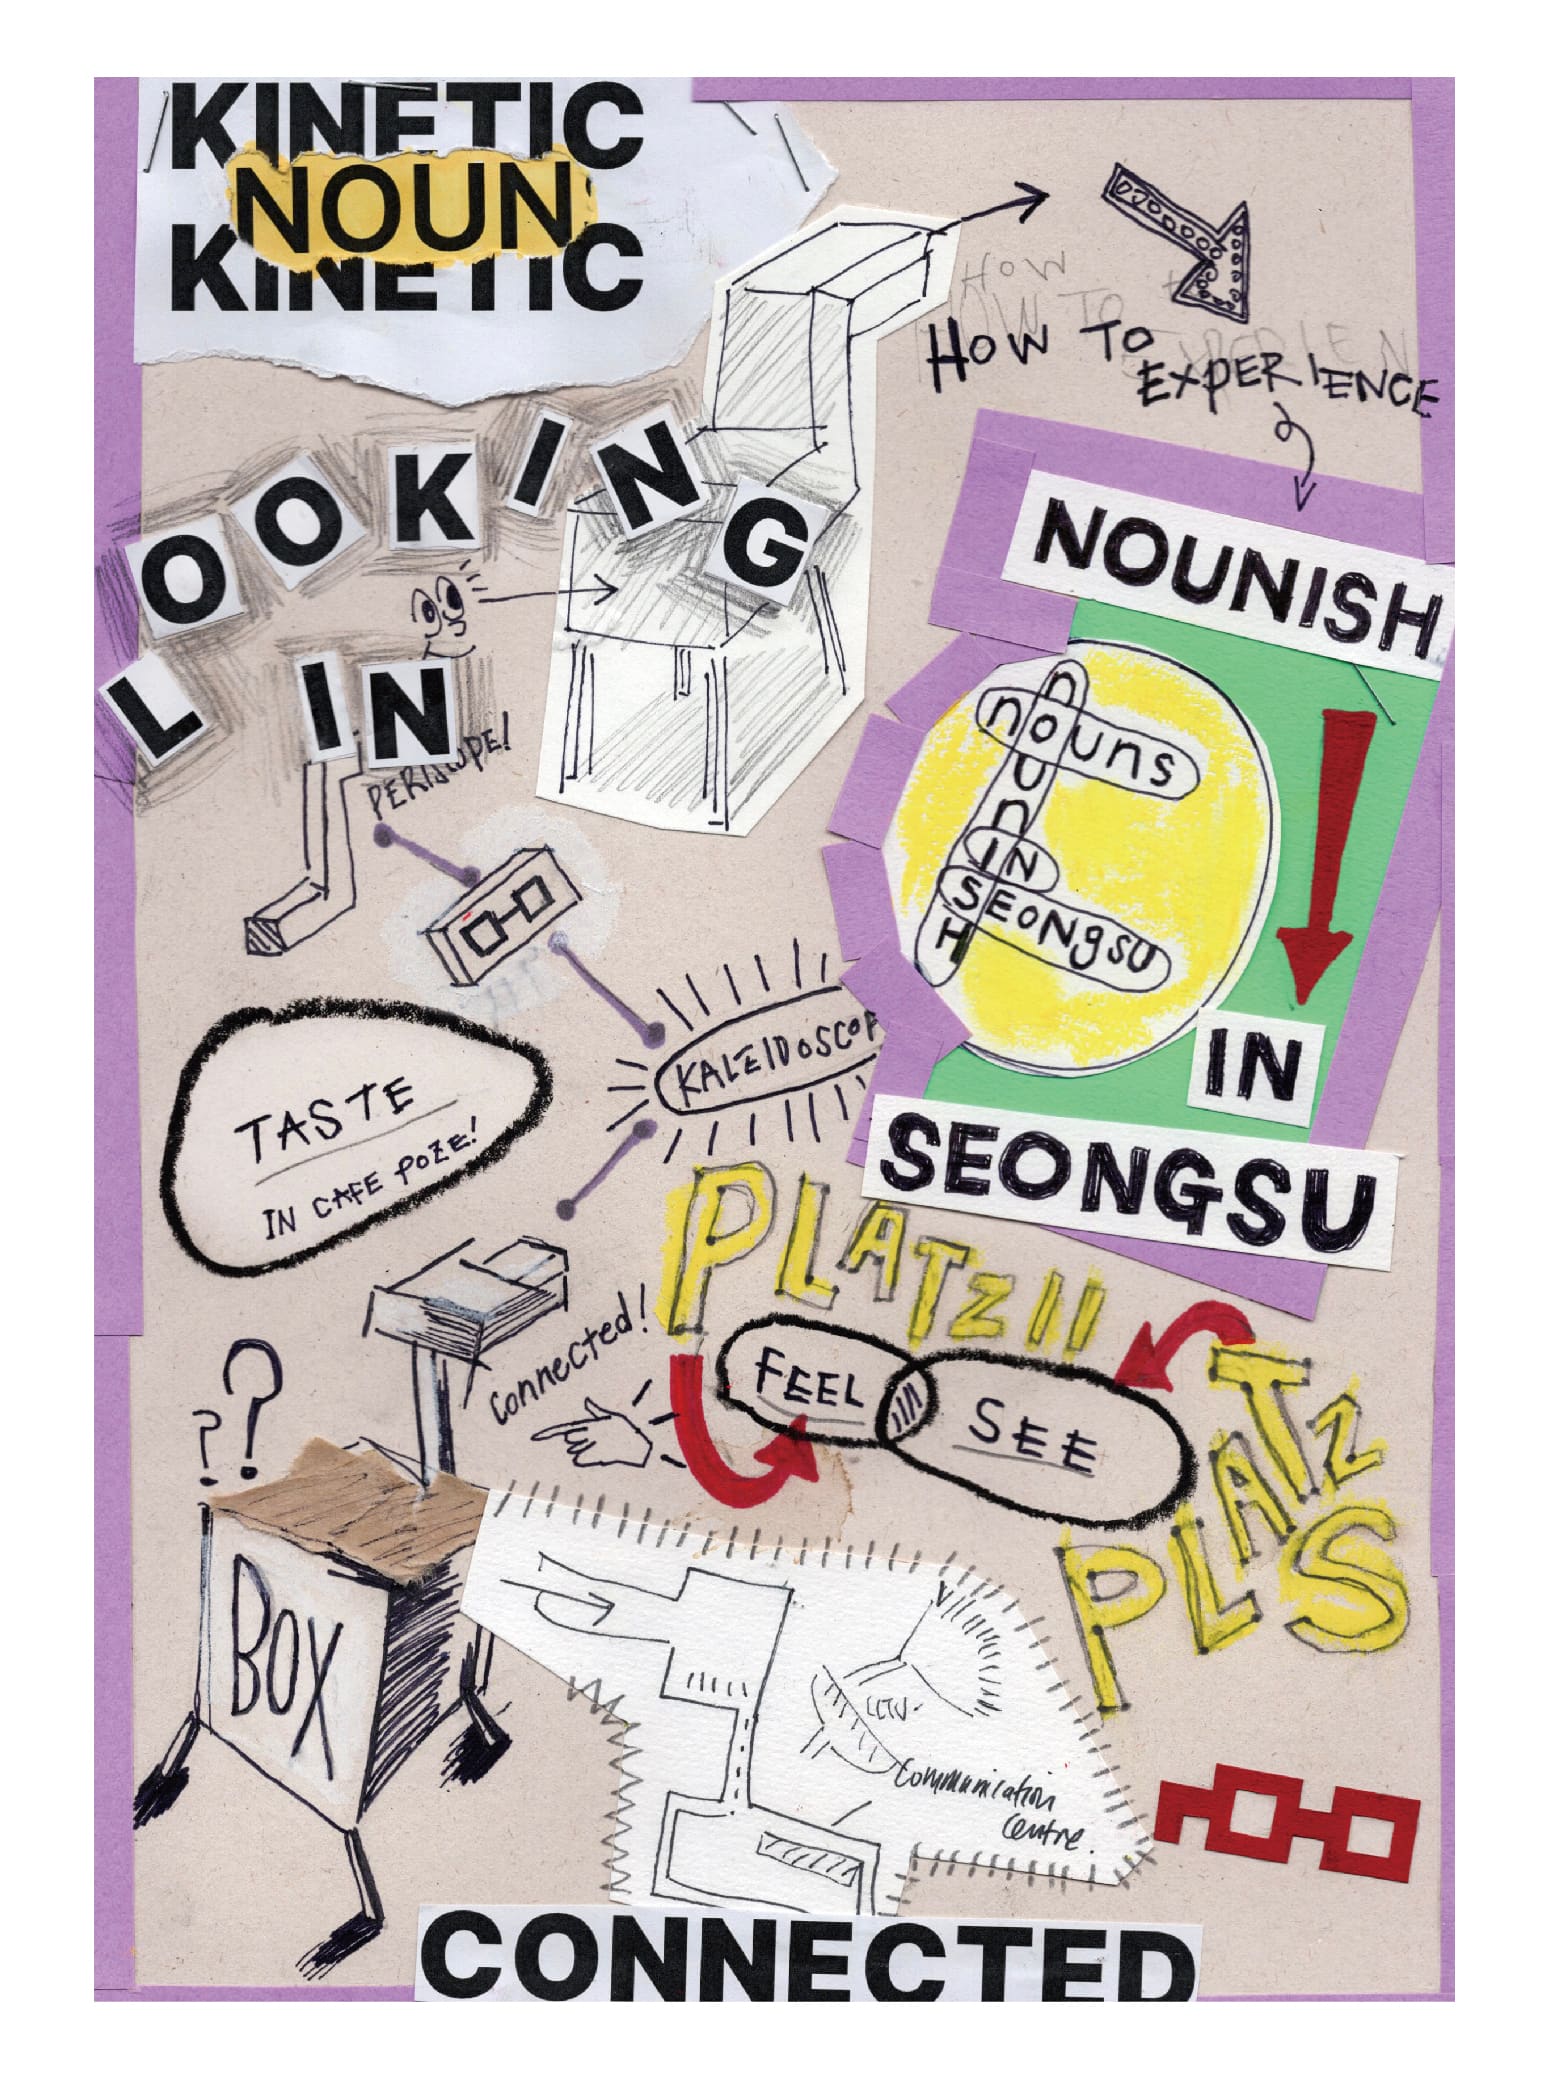 KINETIC
NOUN
KINETIC
HOW
HOW TO
EXPERIEN
HOW TO
EXPERIENCE
LOOKING
IN
PERISCOPE!
NOUNISH
nounish
nouns
IN
SEONgSU
IN
SEONGSU
KALEIDOSCOP
TASTE
IN CAFE POZE!
PLATZ II
Connected!
FEEL
SEE
PLATZ
PLS
??
BOX
CCTV.
Communication
Centre.
CONNECTED